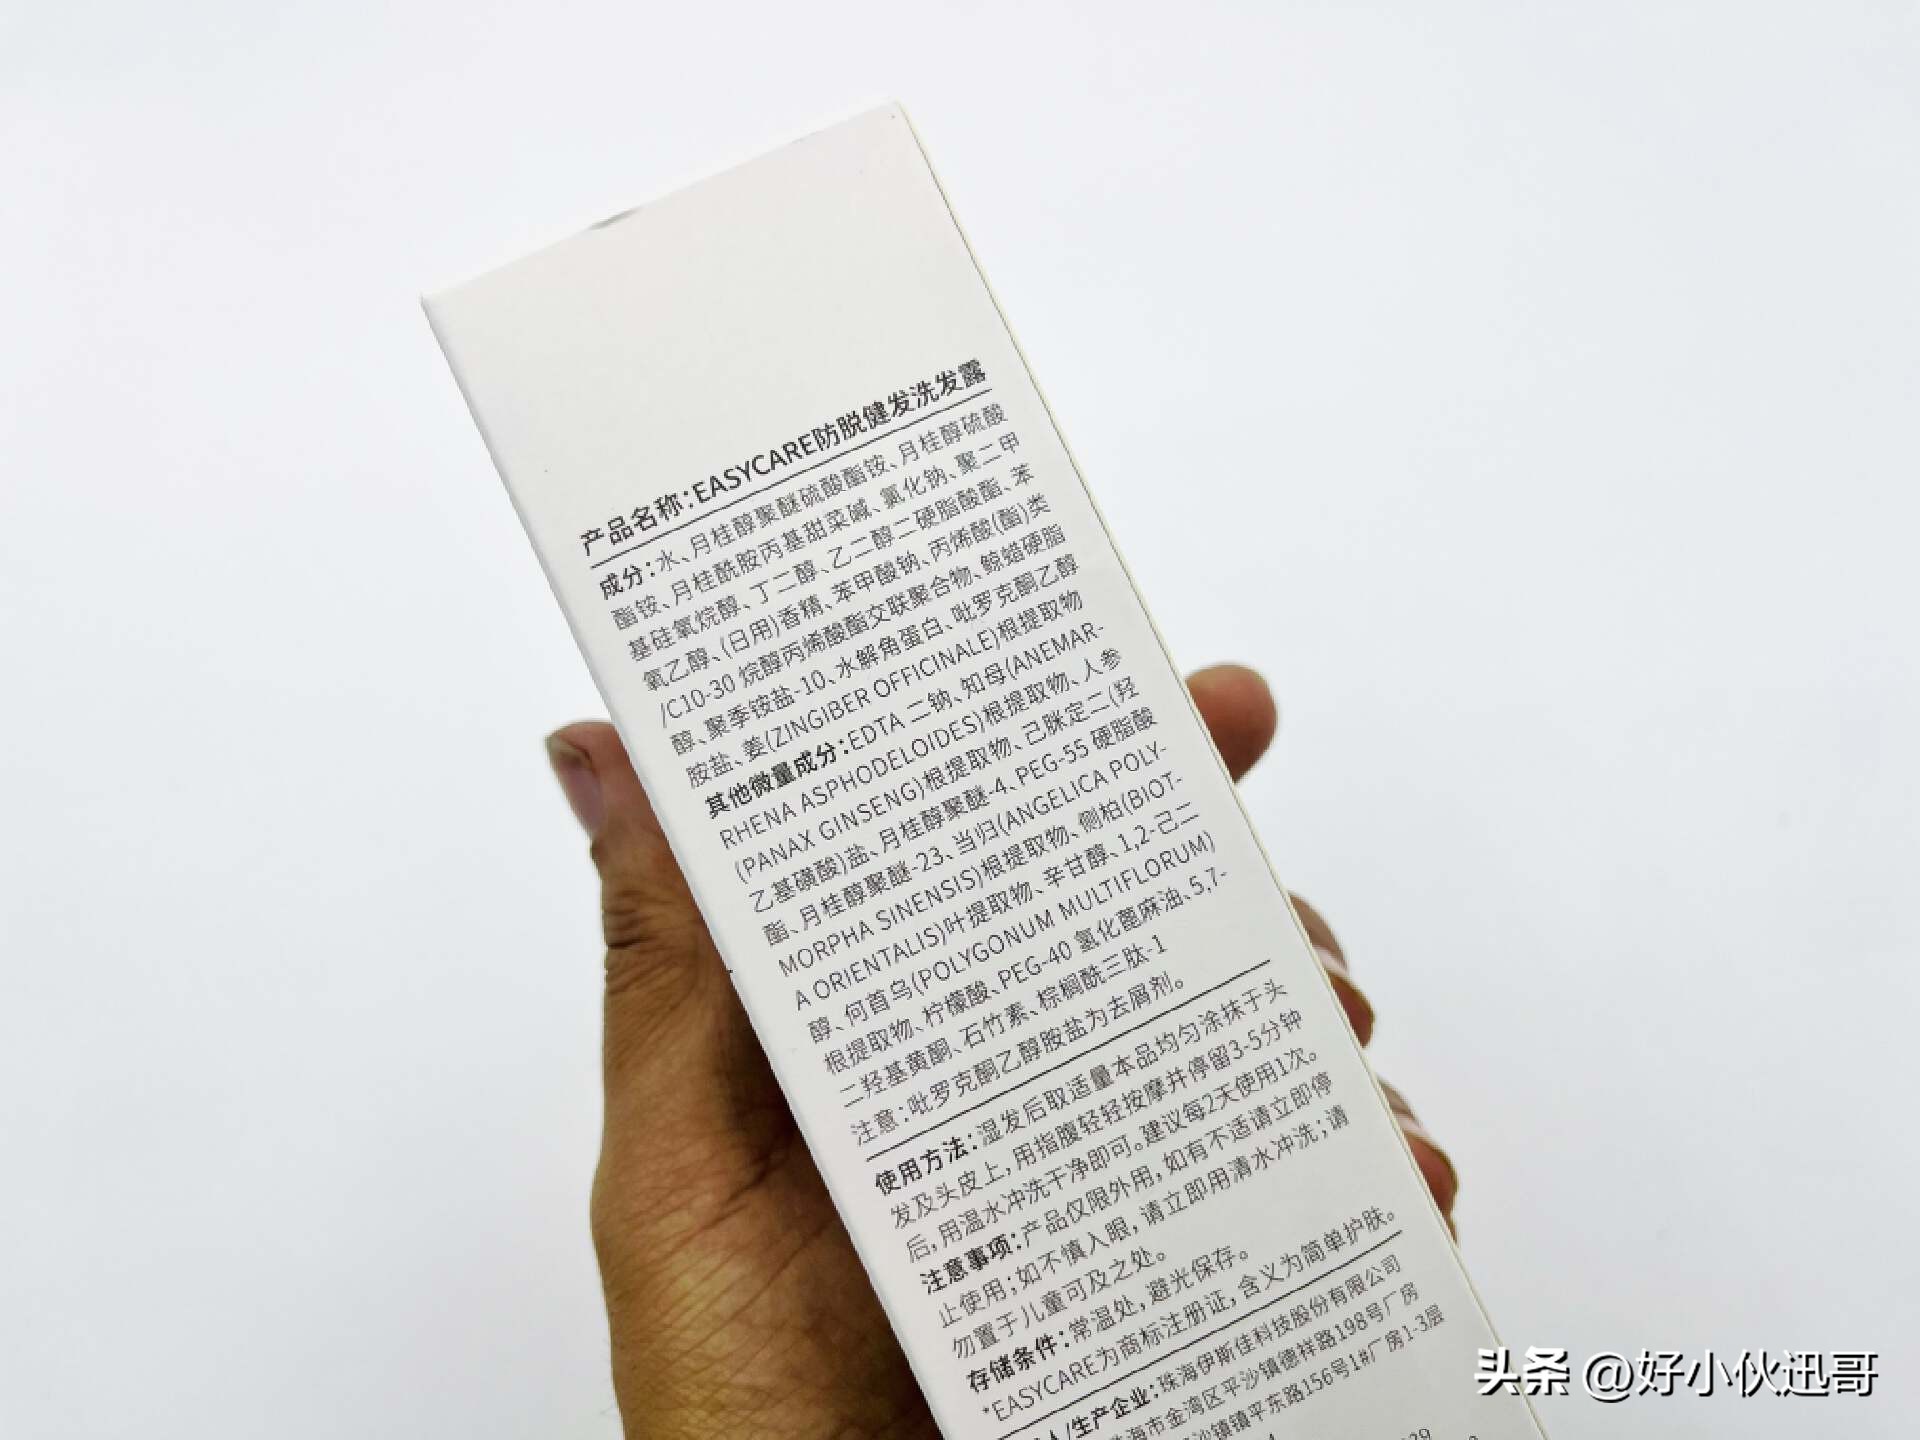 产品名称:EASYCARE防脱健发洗发露
成分:水、月桂醇聚醚硫酸酯铵、月桂醇硫酸
酯铵、月桂酰胺丙基甜菜碱、氯化钠、聚二甲
基硅氧烷醇、丁二醇、乙二醇二硬脂酸酯、苯
氧乙醇、(日用)香精、苯甲酸钠、丙烯酸(酯)类
/C10-30 烷醇丙烯酸酯交联聚合物、鲸蜡硬脂
醇、聚季铵盐-10、水解角蛋白、吡罗克酮乙醇
胺盐、姜(ZINGIBER OFFICINALE)根提取物
其他微量成分:EDTA 二钠、知母(ANEMAR-
RHENA ASPHODELOIDES)根提取物、人参
(PANAX GINSENG)根提取物、己脒定二(羟
乙基磺酸)盐、月桂醇聚醚-4、PEG-55 硬脂酸
酯、月桂醇聚醚-23、当归(ANGELICA POLY-
MORPHA SINENSIS)根提取物、侧柏(BIOT-
A ORIENTALIS)叶提取物、辛甘醇、1,2-己二
醇、何首乌(POLYGONUM MULTIFLORUM)
根提取物、柠檬酸、PEG-40 氢化蓖麻油、5,7-
二羟基黄酮、石竹素、棕榈酰三肽-1
注意:吡罗克酮乙醇胺盐为去屑剂。
使用方法:湿发后取适量本品均匀涂抹于头
发及头皮上,用指腹轻轻按摩并停留3-5分钟
后,用温水冲洗干净即可。建议每2天使用1次。
注意事项:产品仅限外用,如有不适请立即停
止使用;如不慎入眼,请立即用清水冲洗;请
勿置于儿童可及之处。
存储条件:常温处,避光保存。
*EASYCARE为商标注册证,含义为简单护肤。
人/生产企业:珠海伊斯佳科技股份有限公司
珠海市金湾区平沙镇德祥路198号厂房
沙镇镇平东路156号1#厂房1-3层
头条 @好小伙迅哥